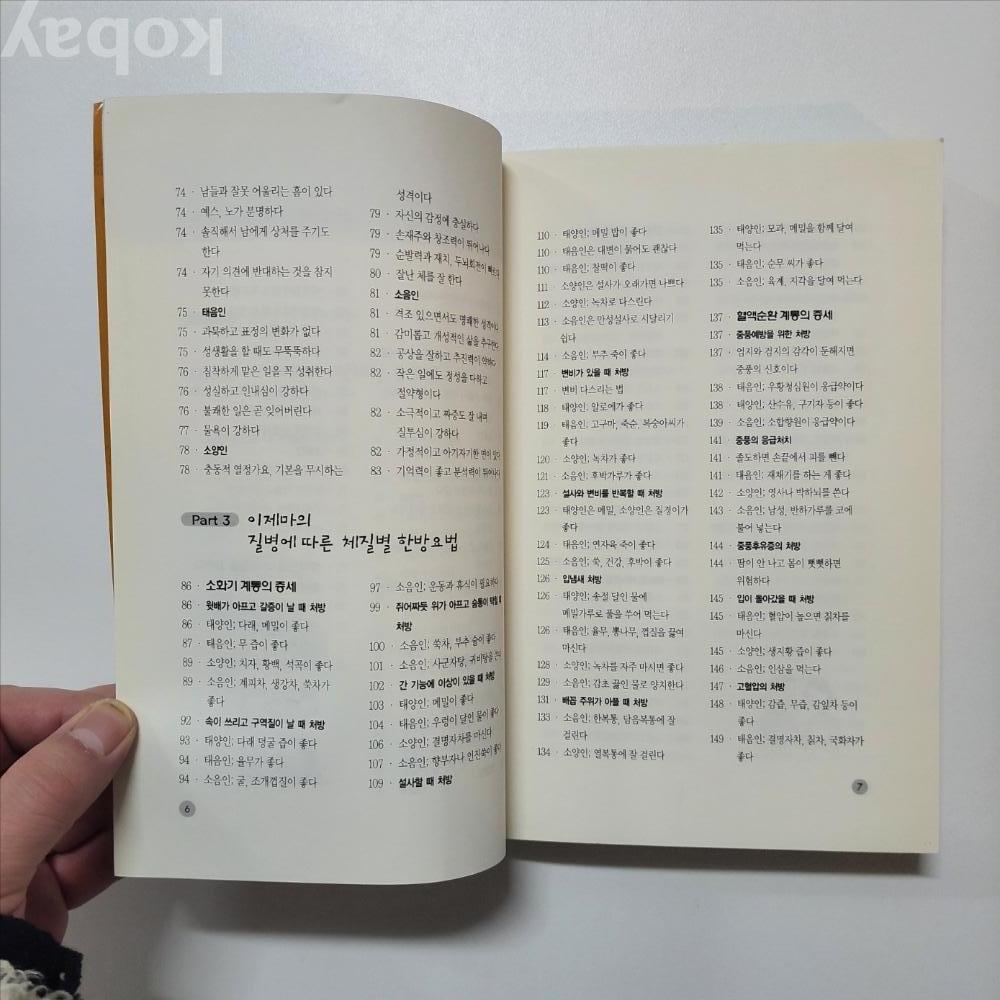 kobay
74 · 남들과 잘못 어울리는 흠이 있다
74 · 예스, 노가 분명하다
74 · 솔직해서 남에게 상처를 주기도
한다
74 · 자기 의견에 반대하는 것을 참지
못한다
75 · 태음인
75 · 과묵하고 표정의 변화가 없다
75 · 성생활을 할 때도 무뚝뚝하다
76 · 침착하게 맡은 일을 꼭 성취한다
76 · 성실하고 인내심이 강하다
76 · 불쾌한 일은 곧 잊어버린다
77 · 물욕이 강하다
78 · 소양인
78 · 충동적 열정가요, 기본을 무시하는
성격이다
79 · 자신의 감정에 충실하다
79 · 손재주와 창조력이 뛰어나다
79 · 순발력과 재치, 두뇌회전이
80 · 잘난 체를 잘 한다
81 · 소음인
81 · 격조 있으면서도 명쾌한 성격이다
81 · 감미롭고 개성적인 삶을 추구한다
82 · 공상을 잘하고 추진력이 약하다
82 · 작은 일에도 정성을 다하고
절약형이다
82 · 소극적이고 짜증도 잘 내며
질투심이 강하다
82 · 가정적이고 아기자기한 면이 있다
83 · 기억력이 좋고 분석력이 뛰어나다
Part 3 이제마의
질병에 따른 체질별 한방요법
86 · 소화기 계통의 증세
86 · 윗배가 아프고 갈증이 날 때 처방
86 · 태양인; 다래, 메밀이 좋다
87 · 태음인; 무 즙이 좋다
89 · 소양인; 치자, 황백, 석곡이 좋다
89 · 소음인; 계피차, 생강차, 쑥차가
좋다
92 · 속이 쓰리고 구역질이 날 때 처방
93 · 태양인; 다래 덩굴 즙이 좋다
94 · 태음인; 율무가 좋다
94 · 소음인; 굴, 조개껍질이 좋다
97 · 소음인; 운동과 휴식이 필요하다
99 · 쥐어짜듯 위가 아프고 숨통이 막힐 때
처방
100 · 소음인; 쑥차, 부추 술이 좋다
101 · 소음인; 사군자탕, 귀비탕을
102 · 간 기능에 이상이 있을 때 처방
103 · 태양인; 메밀이 좋다
104 · 태음인; 우렁이 달인 물이 좋다
106 · 소양인; 결명자차를 마신다
107 · 소음인; 향부자나 인진쑥이 좋다
109 · 설사할 때 처방
6
110 · 태양인; 메밀 밥이 좋다
110 · 태음인은 대변이 묽어도 괜찮다
110 · 태음인; 찰떡이 좋다
111 · 소양인은 설사가 오래가면 나쁘다
112 · 소양인; 녹차로 다스린다
113 · 소음인은 만성설사로 시달리기
쉽다
114 · 소음인; 부추 죽이 좋다
117 · 변비가 있을 때 처방
117 · 변비 다스리는 법
118 · 태양인; 알로에가 좋다
119 · 태음인; 고구마, 죽순, 복숭아씨가
좋다
120 · 소양인; 녹차가 좋다
121 · 소음인; 후박가루가 좋다
123 · 설사와 변비를 반복할 때 처방
123 · 태양인은 메밀, 소양인은 질경이가
좋다
124 · 태음인; 연자육 죽이 좋다
125 · 소음인; 쑥, 건강, 후박이 좋다
126 · 입냄새 처방
126 · 태양인; 송절 달인 물에
메밀가루로 풀을 쑤어 먹는다
126 · 태음인; 율무, 뽕나무, 껍질을 끓여
마신다
128 · 소양인; 녹차를 자주 마시면 좋다
129 · 소음인; 감초 끓인 물로 양치한다
131 · 배꼽 주위가 아플 때 처방
133 · 소음인; 한복통, 담음복통에 잘
걸린다
134 · 소양인; 열복통에 잘 걸린다
135 · 태양인; 모과, 메밀을 함께 달여
먹는다
135 · 태음인; 순무 씨가 좋다
135 · 소음인; 육계, 지각을 달여 먹는다
137 · 혈액순환 계통의 증세
137 · 중풍예방을 위한 처방
137 · 엄지와 검지의 감각이 둔해지면
중풍의 신호이다
138 · 태음인; 우황청심원이 응급약이다
138 · 태양인; 산수유, 구기자 등이 좋다
139 · 소음인; 소합향원이 응급약이다
141 · 중풍의 응급처치
141 · 졸도하면 손끝에서 피를 뺀다
141 · 태음인; 재채기를 하는 게 좋다
142 · 소양인; 영사나 박하뇌를 쓴다
142 · 소음인; 남성, 반하가루를 코에
불어 넣는다
144 · 중풍후유증의 처방
144 · 땀이 안 나고 몸이 뻣뻣하면
위험하다
145 · 입이 돌아갔을 때 처방
145 · 태음인; 혈압이 높으면 칡차를
마신다
145 · 소양인; 생지황 즙이 좋다
146 · 소음인; 인삼을 먹는다
147 · 고혈압의 처방
148 · 태양인; 감즙, 무즙, 감잎차 등이
좋다
149 · 태음인; 결명자차, 칡차, 국화차가
좋다
7